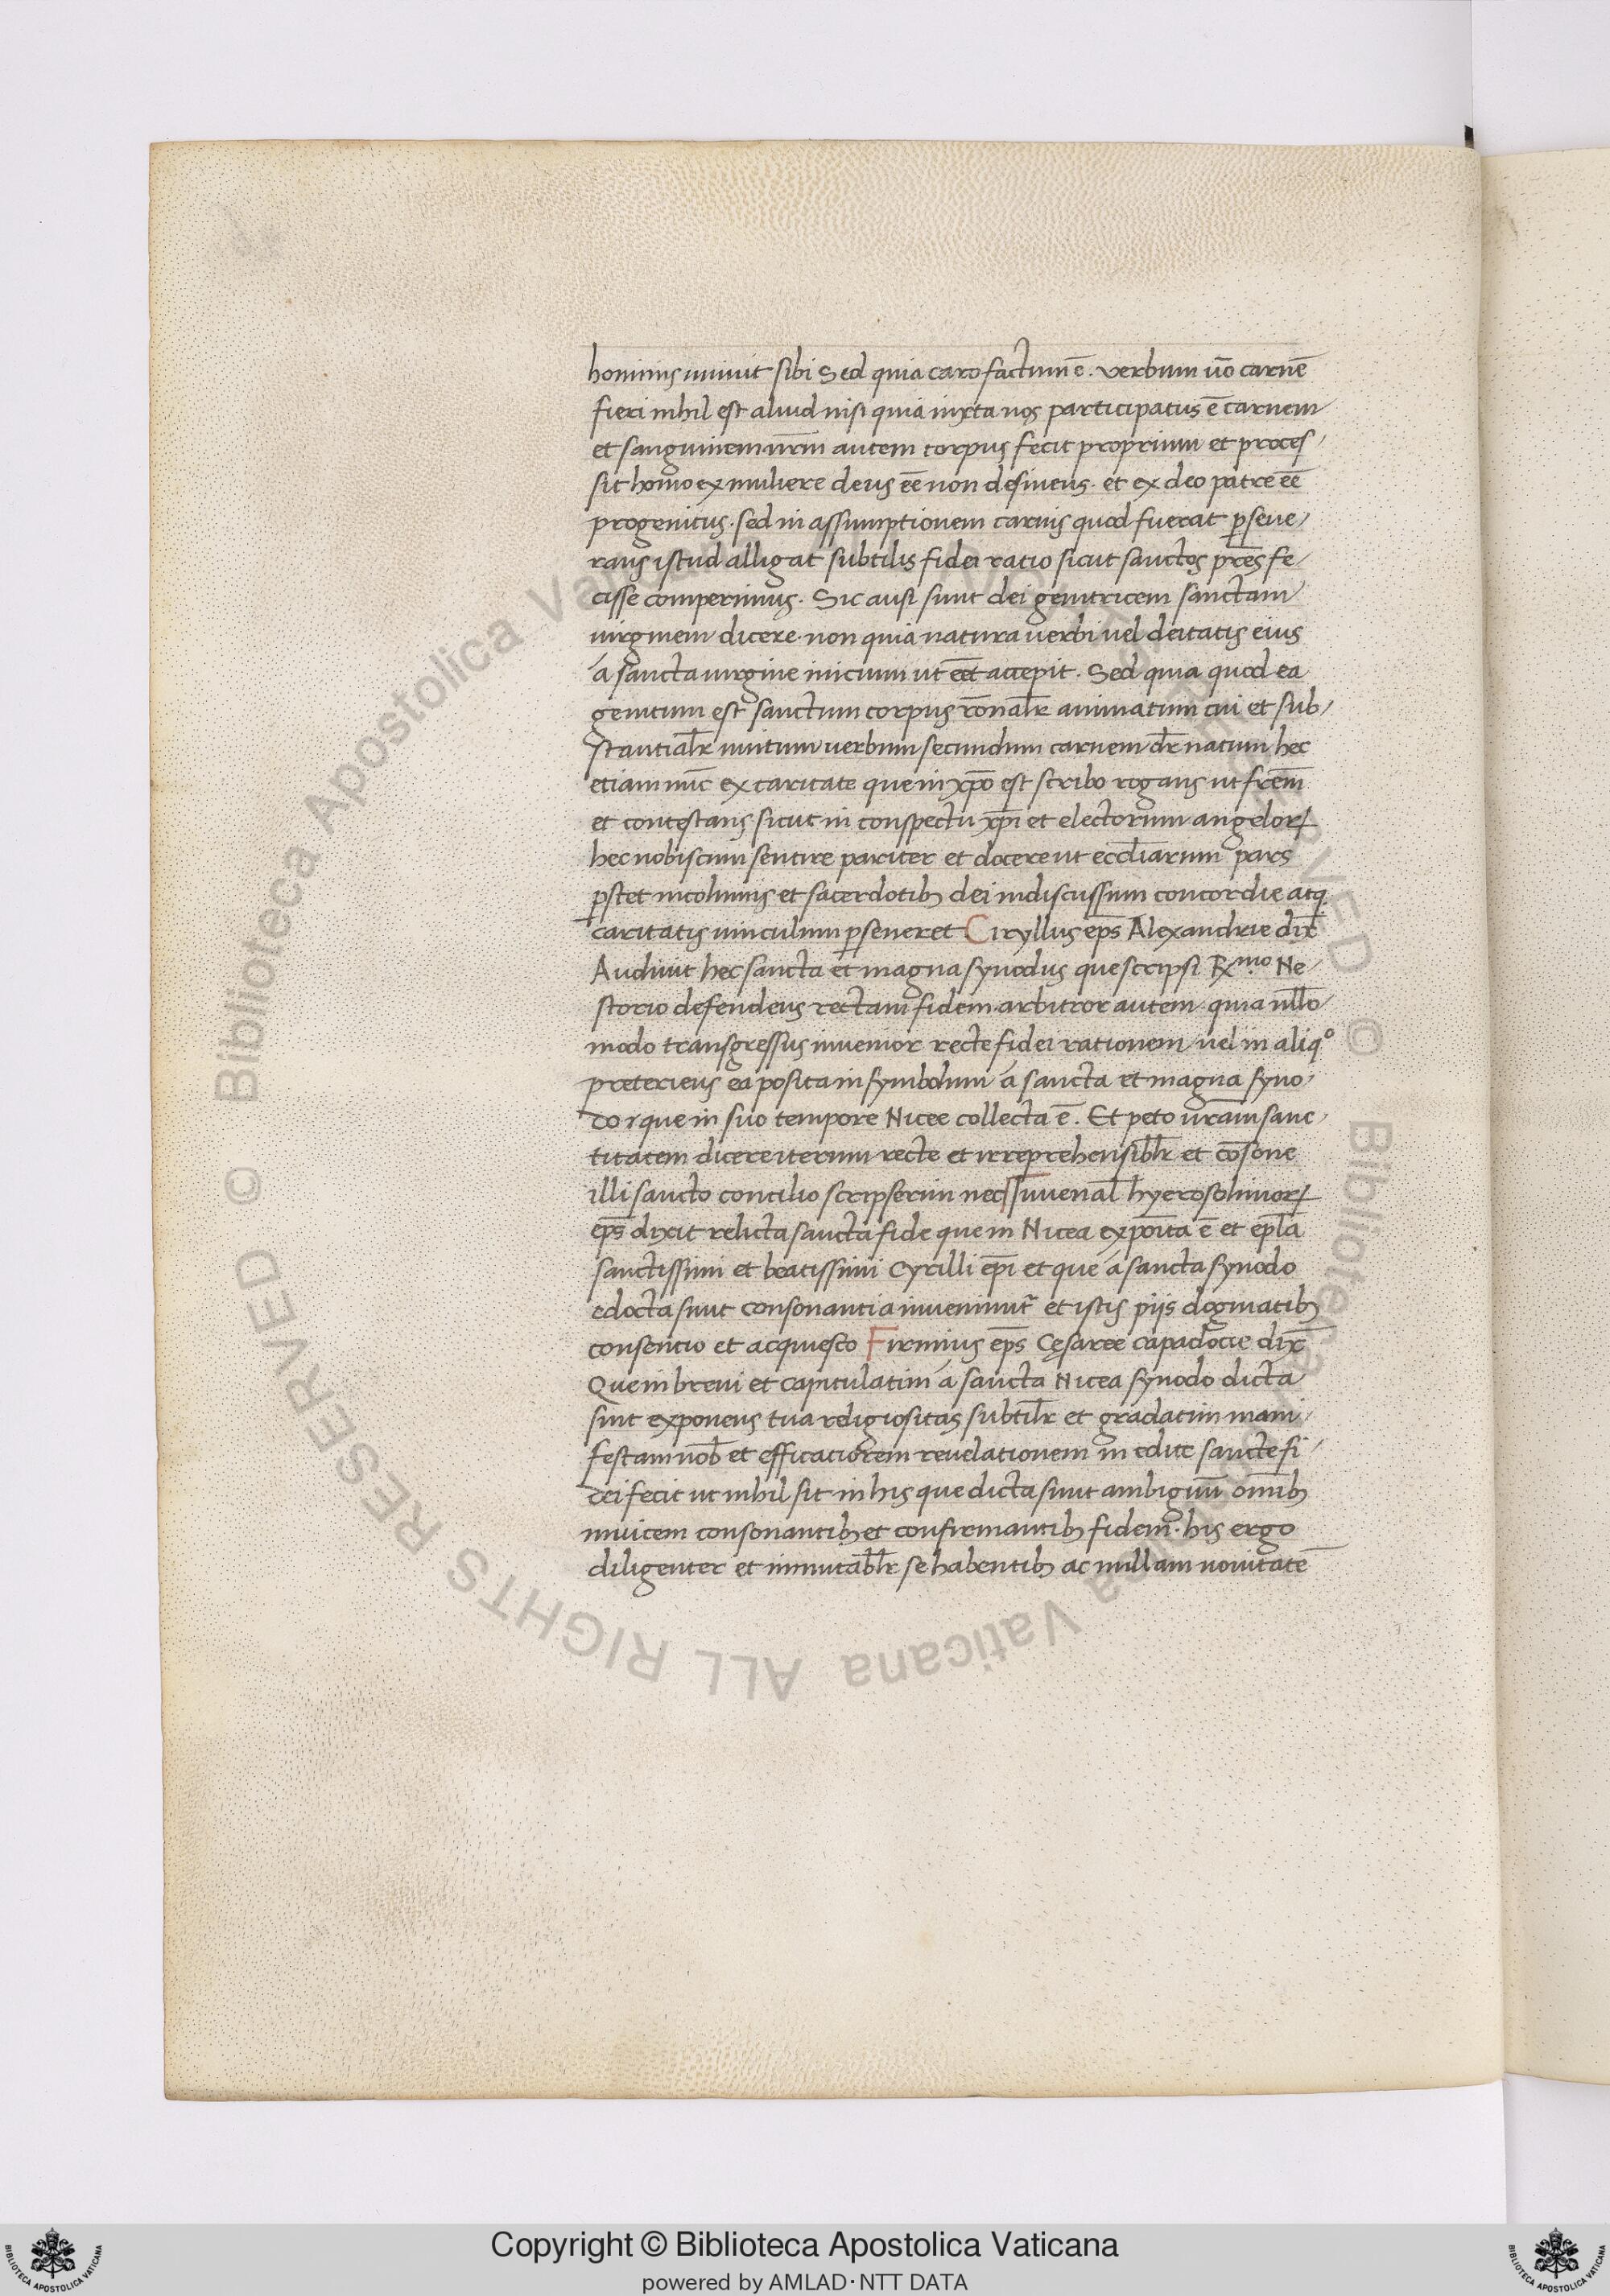 hominis univit sibi Sed quia caro factum ē. verbum ūo carnē
fieri nihil est aliud nisi quia iuxta nos participatus ē carnem
et sanguinem nr̄m autem corpus fecit proprium et proces/
sit homo ex muliere deus eē non desinens. et ex deo patre eē
progenitus. sed in assumptionem carnis quod fuerat ꝑseue/
rans istud alligat subtilis fidei ratio sicut sanctos pr̄es fe/
cisse comperimus. Sic ausi sunt dei genitricem sanctam
uirginem dicere. non quia natura uerbi uel deitatis eius
á sancta uirgine inicium ut eēt accepit. Sed quia quod ea
genitum est sanctum corpus rōnalr̄ animatum cui et sub/
stantialr̄ unitum uerbum secundum carnem dr̄ natum hec
etiam nūc ex caritate que in xp̄o est scribo rogans ut frēm
et contestans sicut in conspectu xp̄i et electorum angeloꝝ
hec nobiscum sentire pariter et docere ut eccl̄iarum pars
ꝑstet incolumis et sacerdotibꝫ dei indiscussum concordie atqꝫ
caritatis uinculum ꝑseueret Ciryllus ep̄s Alexandrie dix̄
Audiuit hec sancta et magna synodus que scripsi Rx̄mo Ne/
storio defendens rectam fidem. arbitror autem quia nllō
modo transgressus inuenior recte fidei rationem uel in aliqº
preteriens ea posita in symbolum á sancta et magna syno/
do que in suo tempore Nicee collecta ē. Et peto ur̄am sanc/
titatem dicere iterum recte et irreprehensiblr̄ et cōsone
illi sancto concilio scripserim nec Iuuenal̄ hyerosolimoꝝ
ep̄s dixit relicta sancta fide que in Nicea expoīta ē et ep̄la
sanctissimi et beatissimi Cyrilli ep̄i et que á sancta synodo
edocta sunt consonantia inuenimut̄ et istis piis dogmatibꝫ
consentio et acquiesco Firmius ep̄s Cęsaree capadocie dix̄
Que in breui et capitulatim á sancta Nicea synodo dicta
sint exponens tua religiositas subtilr̄ et gradatim mani/
festam nob̄ et efficaciorem reuelationem in edite sancte fi/
dei fecit ut nihil sit in his que dicta sunt ambiguū omībꝫ
inuicem consonantibꝫ et confirmantibꝫ fidem. his ergo
diligenter et immutablr̄ se habentibꝫ ac nullam nouitatē
Copyright © Biblioteca Apostolica Vaticana
powered by AMLAD·NTT DATA